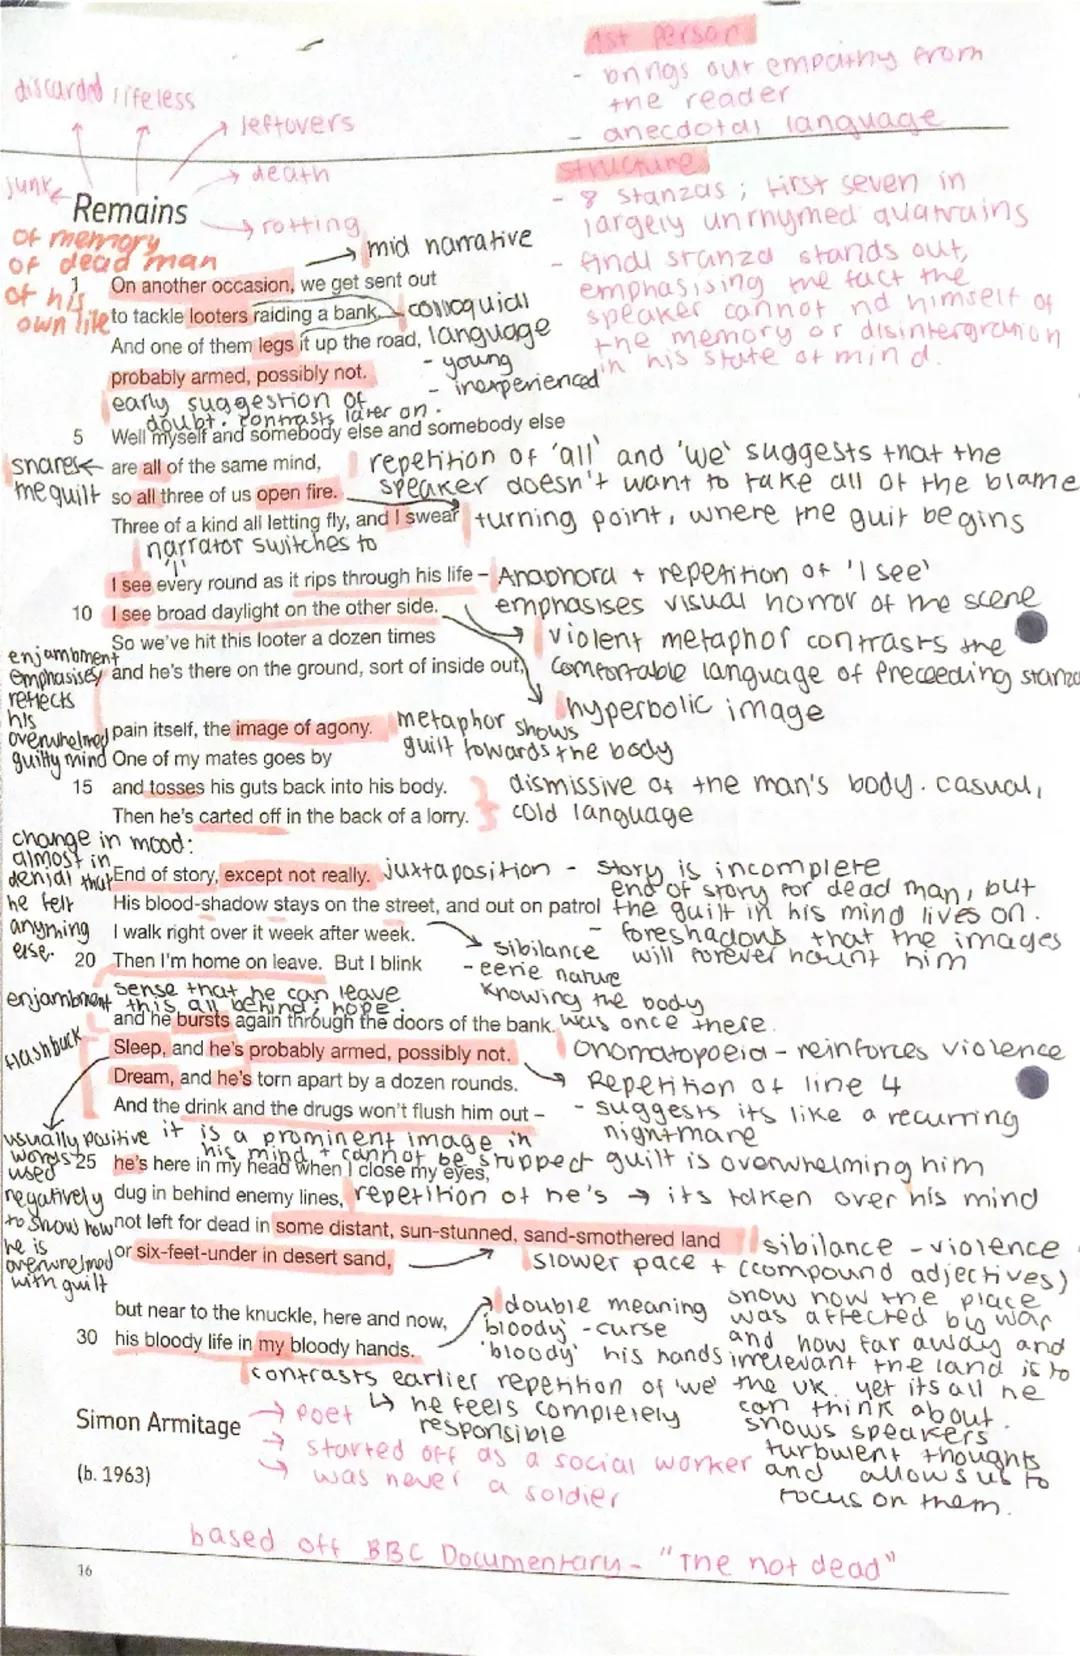 1st person
- brings out empathy from
the reader
- anecdotal language
discarded
lifeless
leftovers
death
junk
rotting
structure
- 8 stanzas; first seven in
largely unrhymed quatrains
- final stanza stands out,
emphasising the fact the
speaker cannot rid himself of
the memory or disintergration
in his state of mind.
Remains
of memory
of dead man
of his
own life
mid narrative
1 On another occasion, we get sent out
to tackle looters raiding a bank.
colloquial
language
- young
- inexperienced
And one of them legs it up the road,
probably armed, possibly not.
early suggestion of
doubt. contrasts later on.
5 Well myself and somebody else and somebody else
are all of the same mind,
so all three of us open fire.
Three of a kind all letting fly, and I swear
shares
the guilt
repetition of 'all' and 'we' suggests that the
speaker doesn't want to take all of the blame
turning point, where the guilt begins
narrator switches to
'I'
I see every round as it rips through his life –
10 I see broad daylight on the other side.
So we've hit this looter a dozen times
and he's there on the ground, sort of inside out,
Anaphora + repetition of 'I see'
emphasises visual horror of the scene
violent metaphor contrasts the
comfortable language of preceeding stanza
hyperbolic image
enjambment
emphasises
reflects
his
overwhelmed
guilty mind
pain itself, the image of agony.
One of my mates goes by
15 and tosses his guts back into his body.
Then he's carted off in the back of a lorry.
metaphor shows
guilt towards the body
dismissive of the man's body. casual,
cold language
change in mood:
almost in
denial that
he felt
anything
else.
End of story, except not really.
His blood-shadow stays on the street, and out on patrol
I walk right over it week after week.
20 Then I'm home on leave. But I blink
juxtaposition - story is incomplete
end of story for dead man, but
the guilt in his mind lives on.
- foreshadows that the images
will forever haunt him
sibilance
- eerie nature
knowing the body
was once there.
sense that he can leave
this all behind, hope.
enjambment
flashback
and he bursts again through the doors of the bank.
Sleep, and he's probably armed, possibly not.
Dream, and he's torn apart by a dozen rounds.
And the drink and the drugs won't flush him out –
onomatopoeia - reinforces violence
Repetition of line 4
- suggests its like a recurring
nightmare
usually positive
words
used
negatively
to show how
he is
overwhelmed
with guilt
it is a prominent image in
his mind + cannot be stopped
guilt is overwhelming him
25 he's here in my head when I close my eyes,
dug in behind enemy lines,
not left for dead in some distant, sun-stunned, sand-smothered land
or six-feet-under in desert sand,
repetition of he's → its taken over his mind
sibilance - violence
slower pace + (compound adjectives)
show how the place
was affected by war
and how far away and
irrelevant the land is to
the UK. yet its all he
can think about.
shows speakers
turbulent thoughts
and allows us to
focus on them.
but near to the knuckle, here and now,
30 his bloody life in my bloody hands.
double meaning
'bloody' - curse
'bloody' his hands
contrasts earlier repetition of 'we'
↳ he feels completely
responsible
Simon Armitage
(b. 1963)
→ poet
→ started off as a social worker
→ was never a soldier
based off BBC Documentary - "The not dead"
16